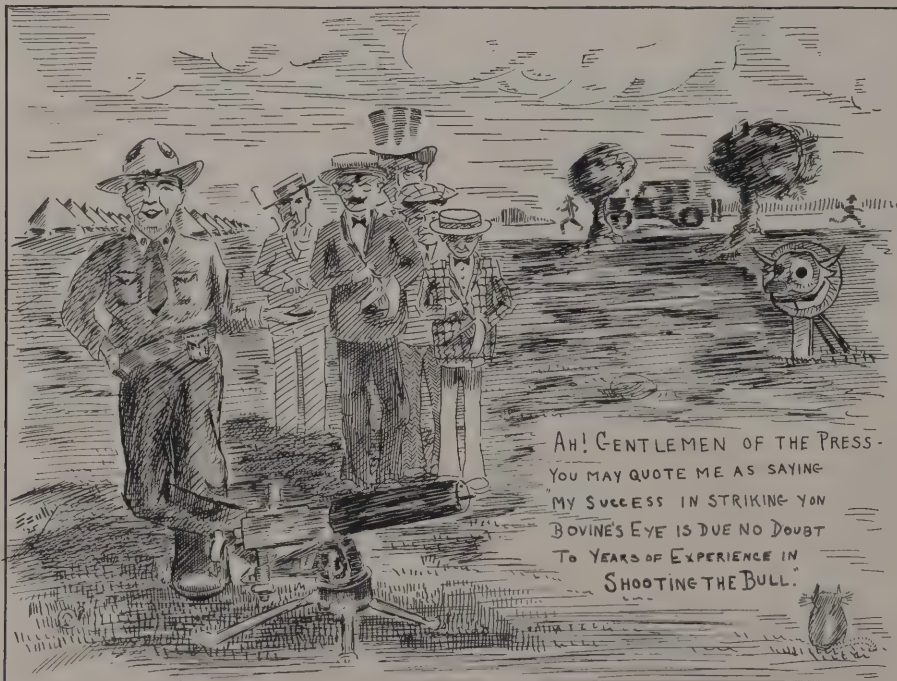 AH! GENTLEMEN OF THE PRESS-
YOU MAY QUOTE ME AS SAYING
"MY SUCCESS IN STRIKING YON
BOVINE'S EYE IS DUE NO DOUBT
TO YEARS OF EXPERIENCE IN
SHOOTING THE BULL."